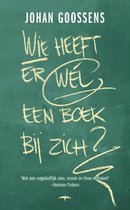 JOHAN GOOSSENS
WIE HEEFT
ER WÉL
EEN BOEK
BIJ ZICH?
'Wat een ongelooflijk rake, mooie en lieve verhalen!'
- Herman Finkers